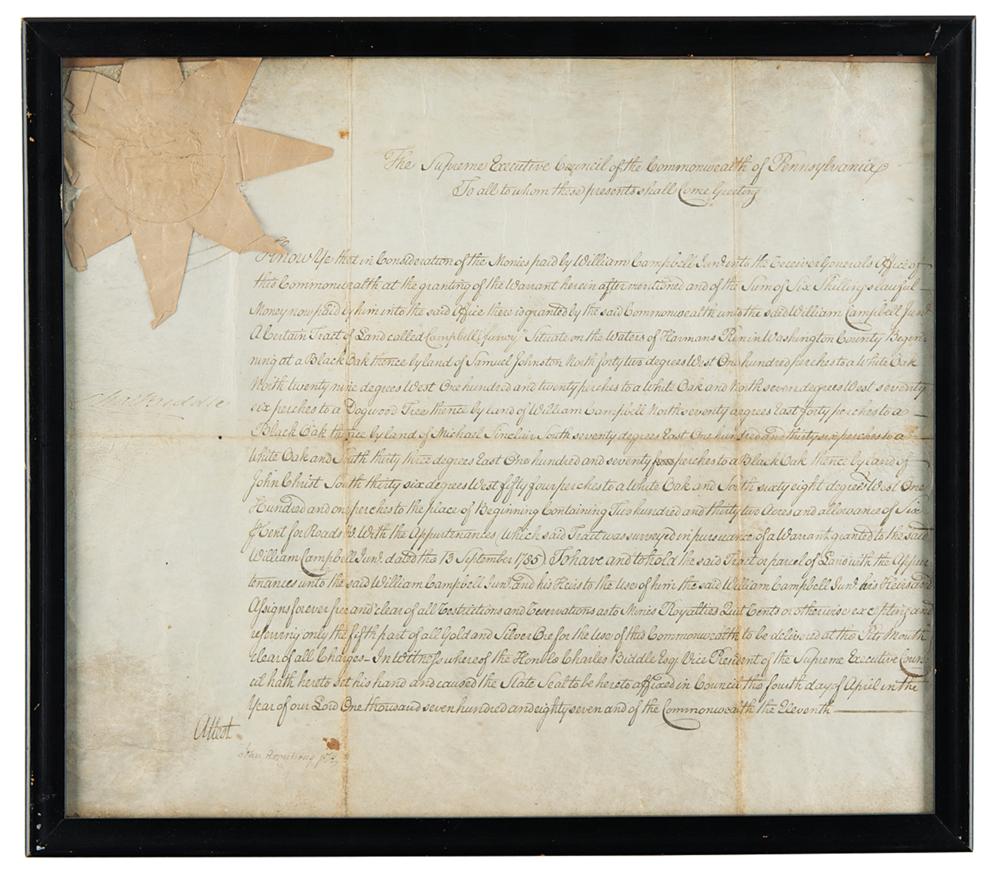 The Supreme Executive Council of the Commonwealth of Pennsylvania
To all to whom these presents shall Come Greeting
Know Ye that in Consideration of the Monies paid by William Campbell Junr. into the Receiver Generals Office of
this Commonwealth at the granting of the Warrant herein after mentioned and of the Sum of Six Shillings lawful
Money now paid by him into the said Office there is granted by the said Commonwealth unto the said William Campbell Junr.
A Certain Tract of Land called Campbells fancy Situate on the Waters of Harmans Run in Washington County Begin-
ning at a Black Oak thence by land of Samuel Johnston North forty two degrees West One hundred perches to a White Oak
North twenty nine degrees West One hundred and twenty perches to a White Oak and North seven degrees West seventy
six perches to a Dogwood Tree thence by land of William Campbell North seventy degrees East forty perches to a
Black Oak thence by land of Michael Sinclair South seventy degrees East One hundred and thirty six perches to a
White Oak and South thirty three degrees East One hundred and seventy perches to a Black Oak thence by land of
John Christ South thirty six degrees West fifty four perches to a White Oak and South sixty eight degrees West One
Hundred and one perches to the place of Beginning Containing Two hundred and thirty two Acres and allowance of Six
Cent for Roads &c. With the Appurtenances, Which said Tract was surveyed in pursuance of a Warrant granted to the said
William Campbell Junr. dated the 13 September 1785) To have and to hold the said Tract or parcel of Land with the Appur
tenances unto the said William Campbell Junr. and his Heirs to the Use of him the said William Campbell Junr. his Heirs and
Assigns forever free and clear of all Restrictions and Reservations as to Mines Royalties Quit Rents or otherwise excepting and
reserving only the fifth part of all Gold and Silver Ore for the Use of this Commonwealth to be delivered at the Pits Mouth
clear of all Charges - In Witness whereof the Honble. Charles Biddle Esqr. Vice President of the Supreme Executive Coun-
cil hath hereto set his hand and caused the State Seal to be hereto affixed in Council the fourth day of April in the
Year of our Lord One thousand seven hundred and eighty seven and of the Commonwealth the Eleventh
Chas Biddle
Attest
John Armstrong